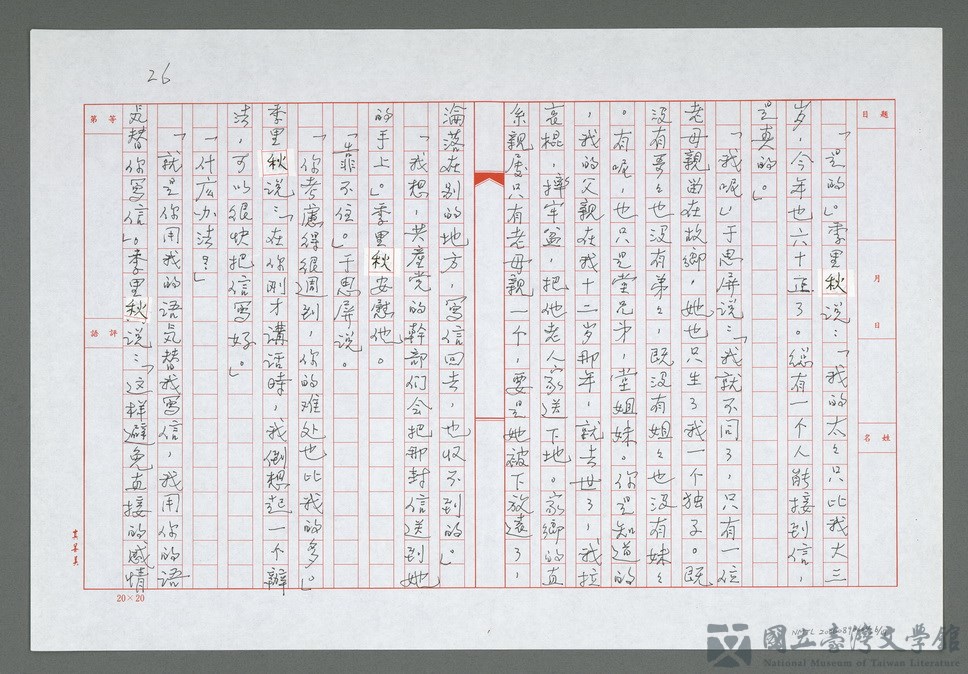 26
題 日
月
日
姓 名
「是的。」季里秋说：「我的太々只比我大三
岁，今年也六十正了。総有一个人能接到信，
是真的。」
「我呢」于思屏说：「我就不同了，只有一位
老母親尚在故鄉，她也只生了我一个独子。既
没有哥々也没有弟々，既没有姐々也没有妹々
。有呢，也只是堂兄弟，堂姐妹。你是知道的
，我的父親在我十二岁那年，就去世了，我拉
哀棍，摔牢盆，把他老人家送下地。家鄉的直
系親屬只有老母親一个，要是她被下放遠了，
淪落在别的地方，寫信回去，也收不到的。」
「我想，共產党的幹部们会把那封信送到她
的手上。」季里秋安慰他。
「靠不住。」于思屏说。
「你考慮得很週到，你的难处也比我的多。」
季里秋说：「在你刚才講话時，我倒想起一个辦
法，可以很快把信寫好。」
「什庅办法？」
「就是你用我的语気替我寫信，我用你的语
気替你寫信。」季里秋说：「这样避免直接的感情
第 等
評 語
20×20
國立臺灣文學館
National Museum of Taiwan Literature